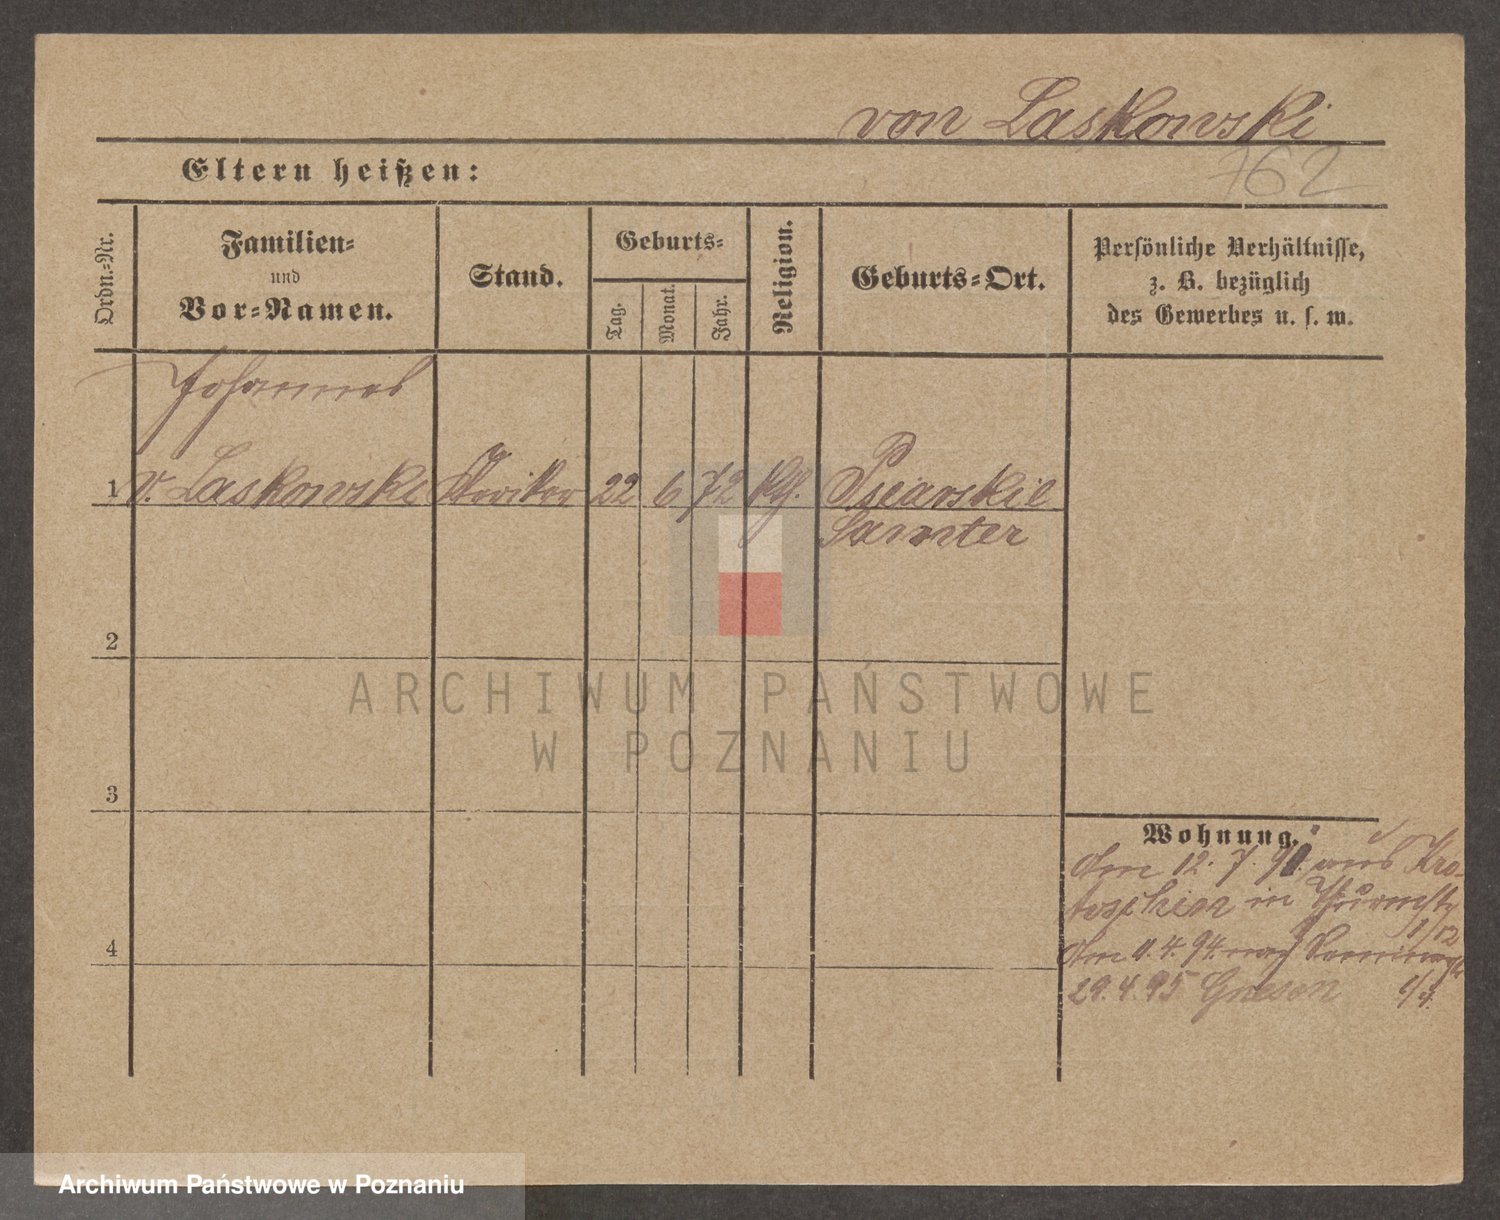 von Laskowski
762
Eltern heißen:
Ordn.-Nr.
Familien-
und
Vor-Namen.
Stand.
Geburts-
Tag.
Monat.
Jahr.
Religion.
Geburts-Ort.
Persönliche Verhältnisse,
z. B. bezüglich
des Gewerbes u. s. w.
Johannes
1 v. Laskowski 22 6 72 kth. Psiarskie
Samter
2
3
4
Wohnung.
Am 12. 7. aus Kro-
toschin in
Am 11. 4. 94. nach
29. 4. 95 Gnesen
ARCHIWUM PAŃSTWOWE
W POZNANIU
Archiwum Państwowe w Poznaniu